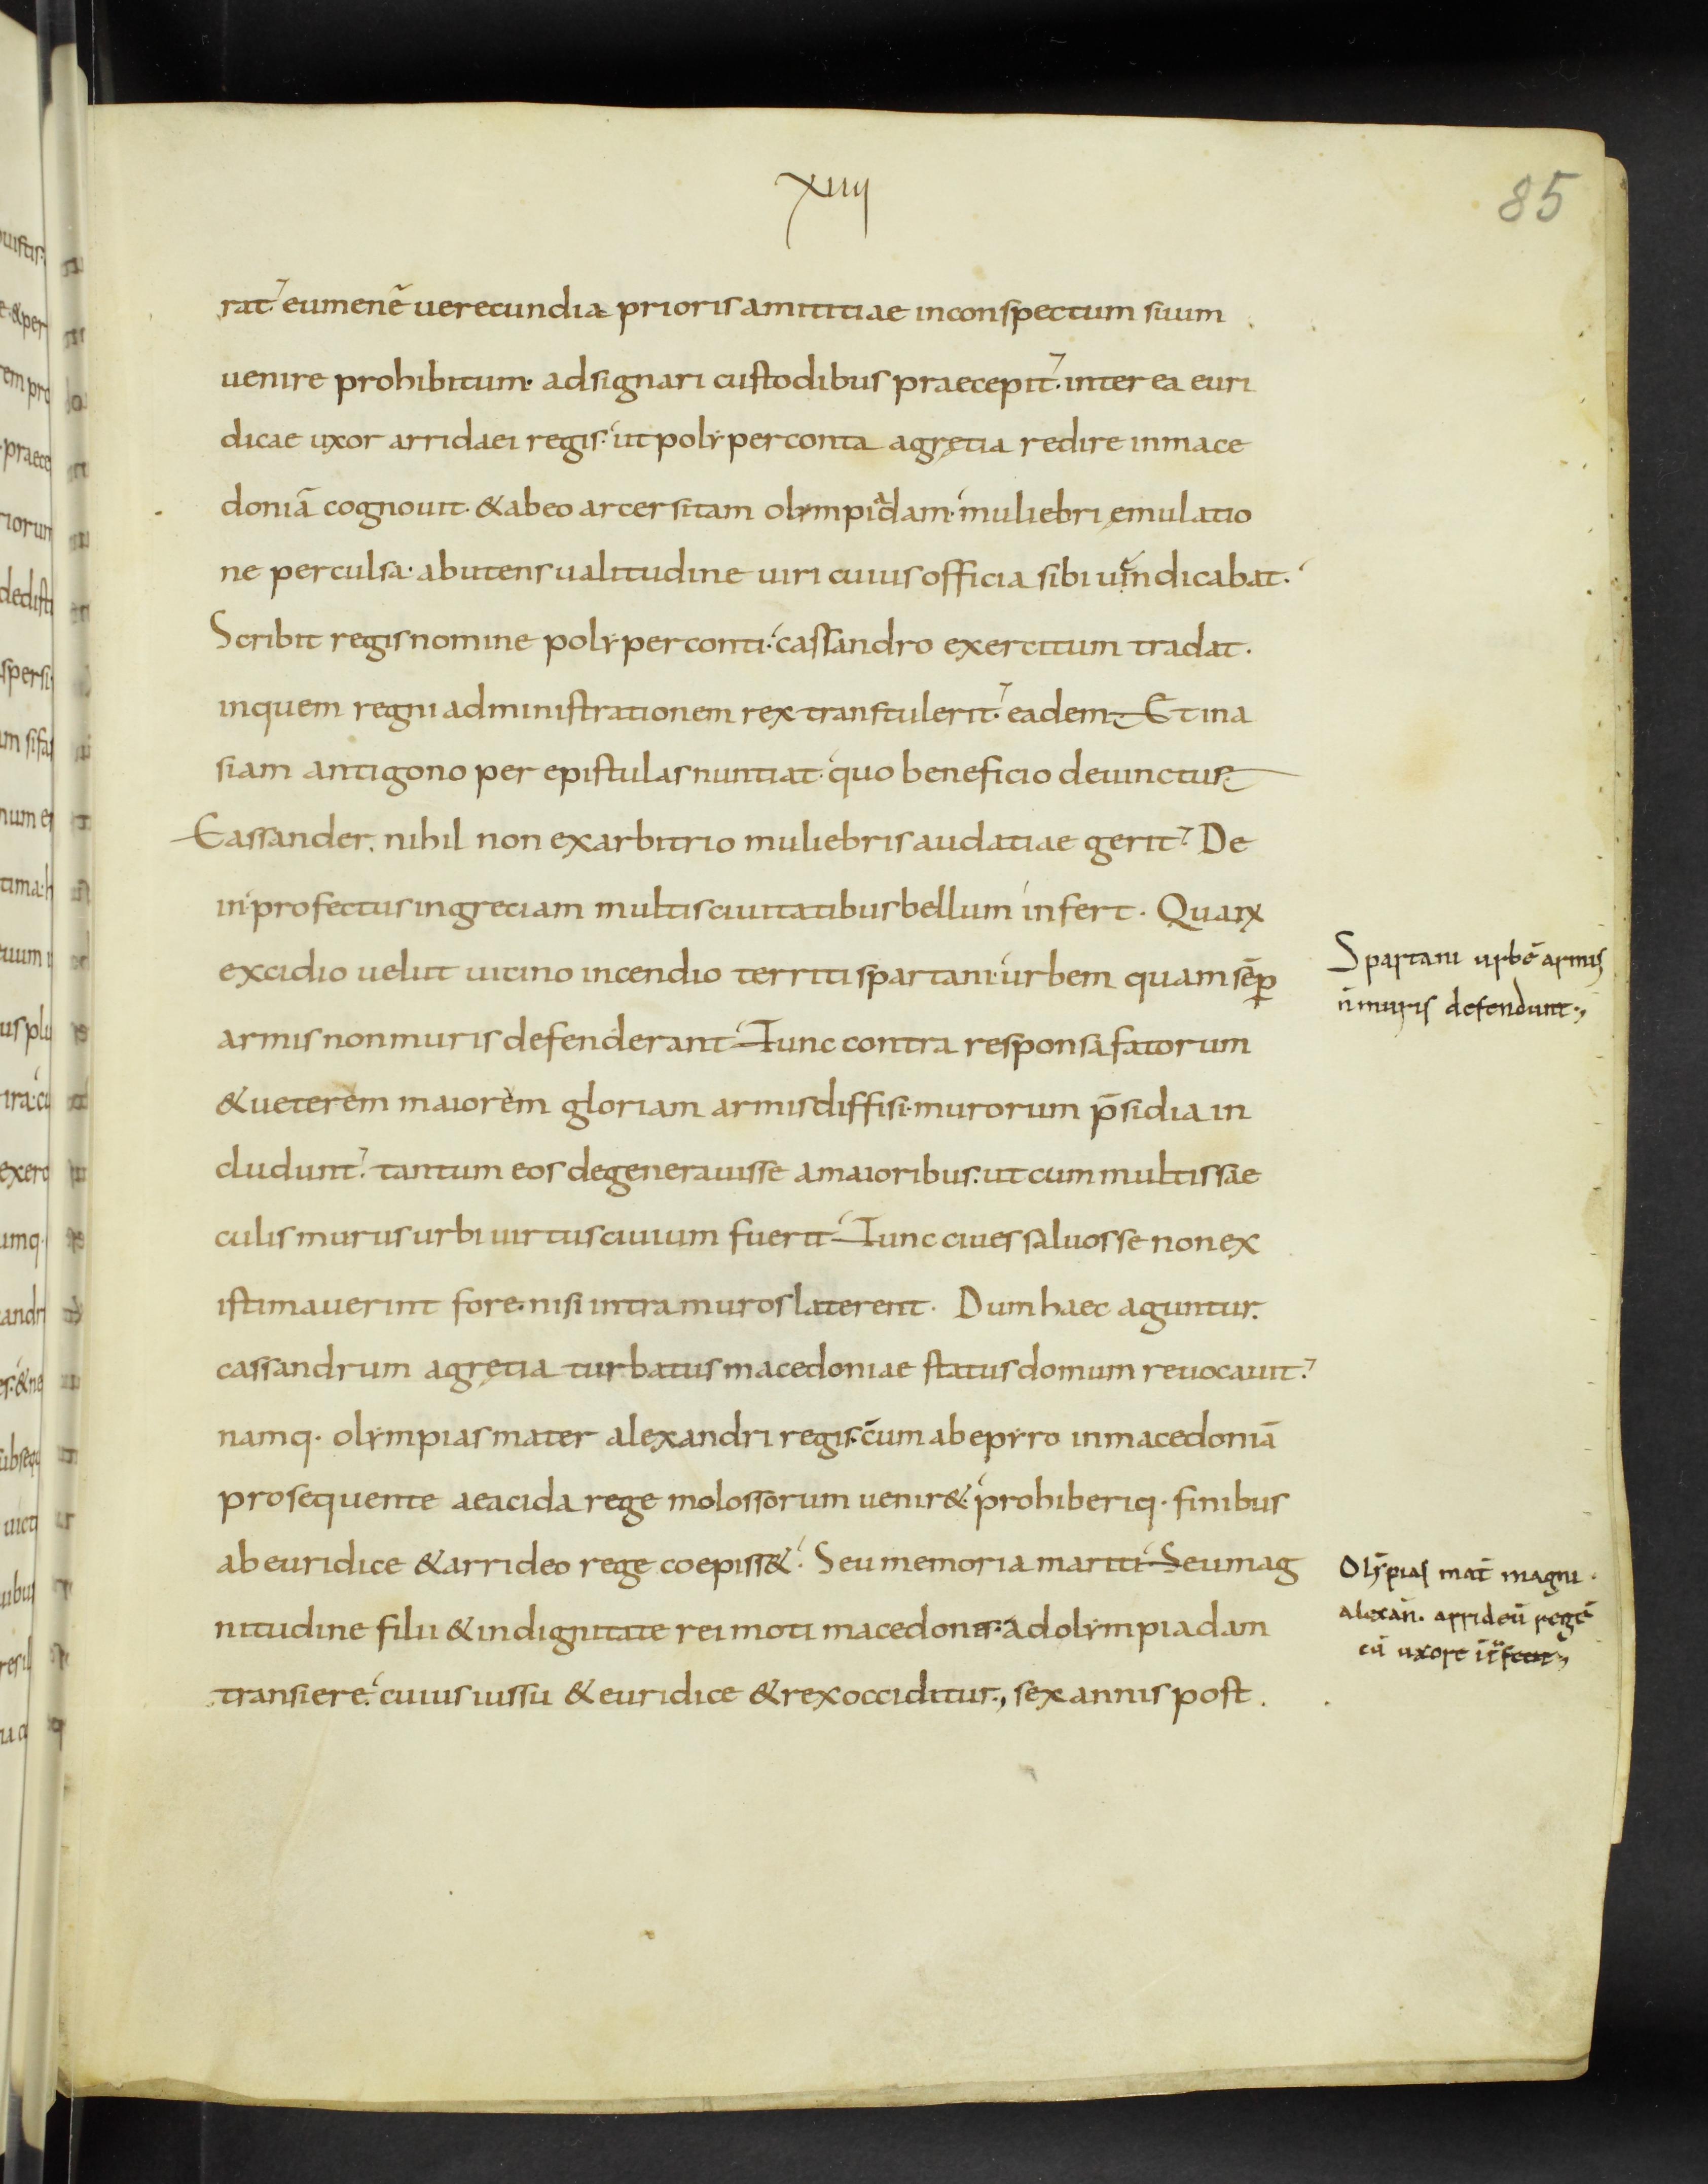 xiiij
85
rat eumenē uerecundia prioris amicitiae inconspectum suum
uenire prohibitum· adsignari custodibus praecepit· inter ea euri
dicae uxor arridaei regis· ut polyperconta agrętia redire inmace
doniā cognouit· &abeo arcersitam olympiadam· muliebri ęmulatio
ne perculsa· abutens ualitudine uiri cuius officia sibi uindicabat·
Scribit regis nomine polyperconti· cassandro exercitum tradat·
inquem regni administrationem rex transtulerit· eadem Et ina
siam antigono per epistulas nuntiat· quo beneficio deuinctus
Cassander. nihil non exarbitrio muliebris audatiae gerit De
in·profectus ingreciam multis ciuitatibus bellum infert· Quarx
excidio uelut uicino incendio territi spartani· urbem quam sēp
armis nonmuris defenderant Tunc contra responsa fatorum
&ueterem maiorem gloriam armis diffisi· murorum p̄sidia in
cludunt· tantum eos degenerauisse amaioribus· ut cum multis sae
culis murus urbi uirtus ciuium fuerit Tunc ciues saluos se non ex
istimauerint fore· nisi intra muros laterent· Dum haec aguntur·
cassandrum agrętia turbatus macedoniae status domum reuocauit·
namq· olympias mater alexandri regis· cum ab epyro inmacedoniā
prosequente aeacida rege molossorum uenir&· prohiberiq· finibus
ab euridice &arrideo rege coepiss&· Seu memoria mariti Seu mag
nitudine filii &indignitate rei moti macedones· ad olympiadam
transiere· cuius iussu &euridice &rex occiditur·, sex annis post·
Spartani urbē armis
n̄ muris defendunt·,
Olȳpias mat̄ magni·
alexān· arrideū regē
cū uxore īt̄fecit·,